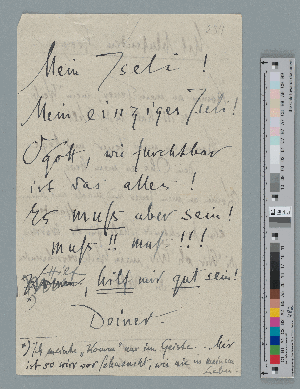 Mein Iseli!
Mein einziges Iseli!
O Gott, wie furchtbar
ist das alles!
Es muß aber sein!
muß!! muß!!!
Hilf
Komm, hilf mir gut sein!
*)
Deiner.
*) ich meine „Komm“ nur im Geiste. Mir
ist so wirr vor Sehnsucht, wie nie in meinem
Leben.